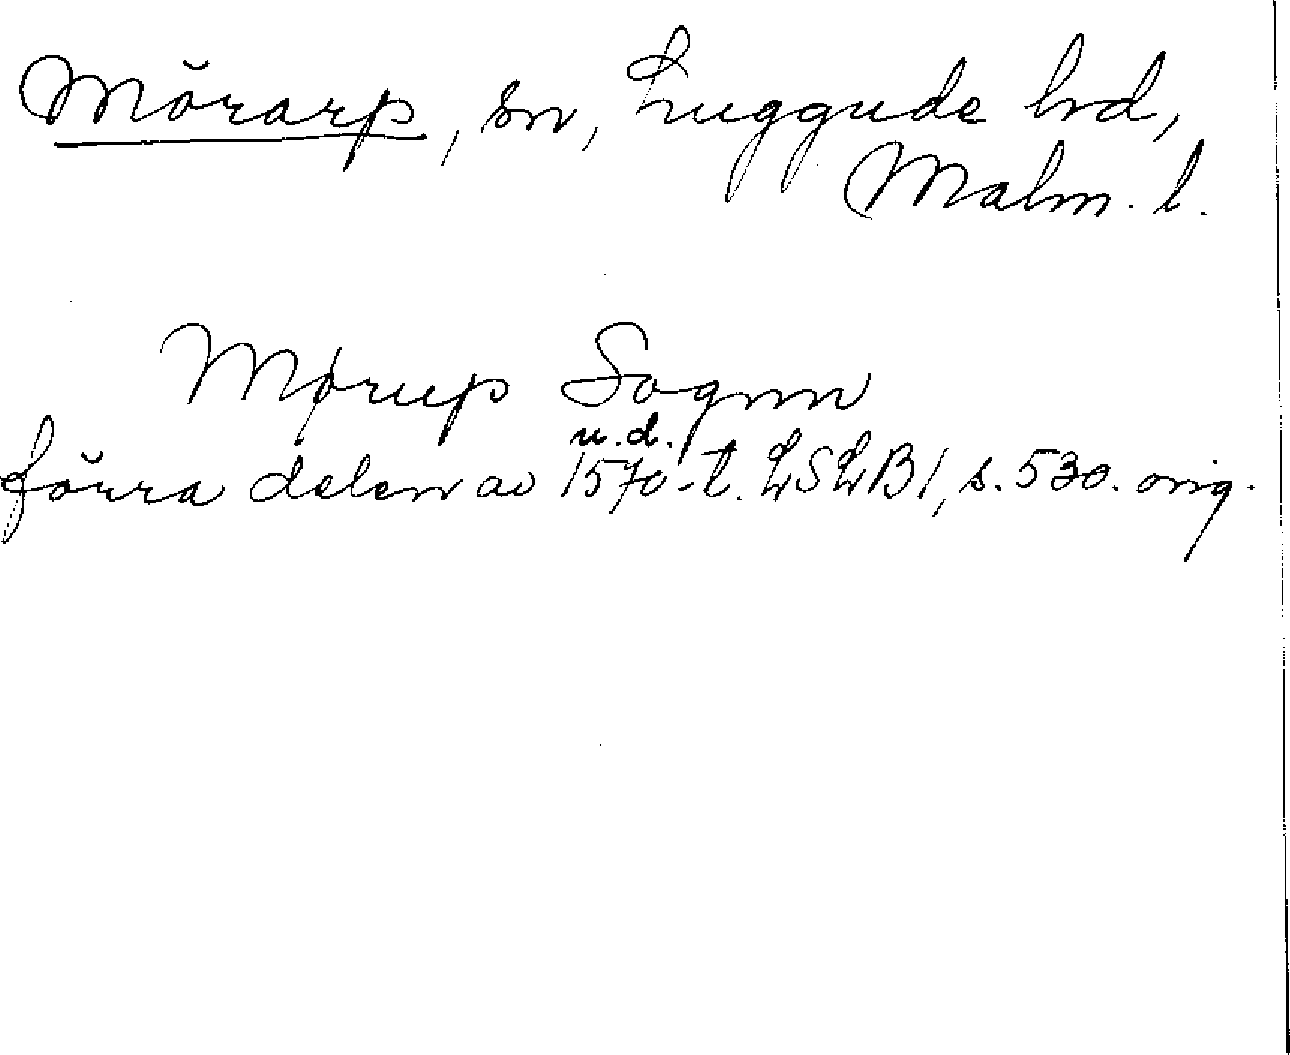 Mörarp, sn, Luggude hd,
Malm. l.
Mørup Sognn
u.d.
förra delen av 1570-t. LSLB1, s. 530. orig.